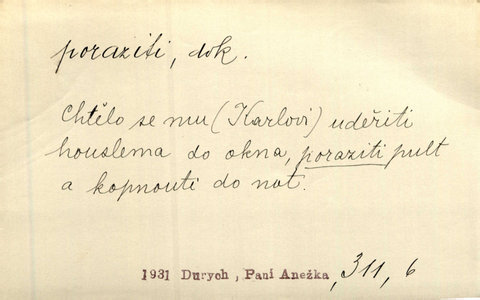 poraziti, dok.
Chtělo se mu (Karlovi) udeřiti
houslema do okna, poraziti pult
a kopnouti do not.
1931 Durych, Paní Anežka, 311, 6